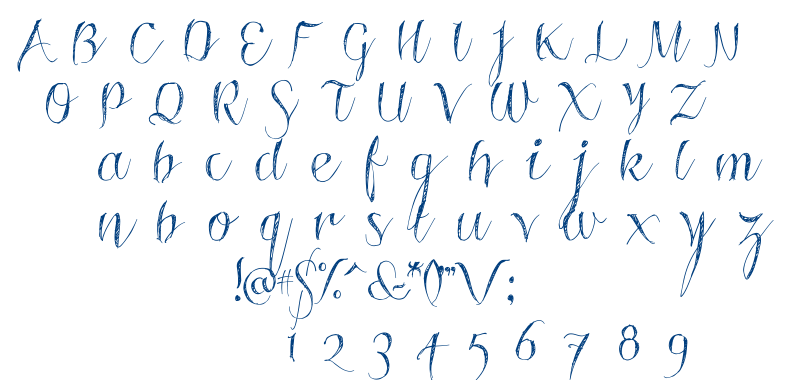 A B C D E F G H I J K L M N
O P Q R S T U V W X Y Z
a b c d e f g h i j k l m
n b o q r s t u v w x y z
!@#$%^&*()"V;
1 2 3 4 5 6 7 8 9